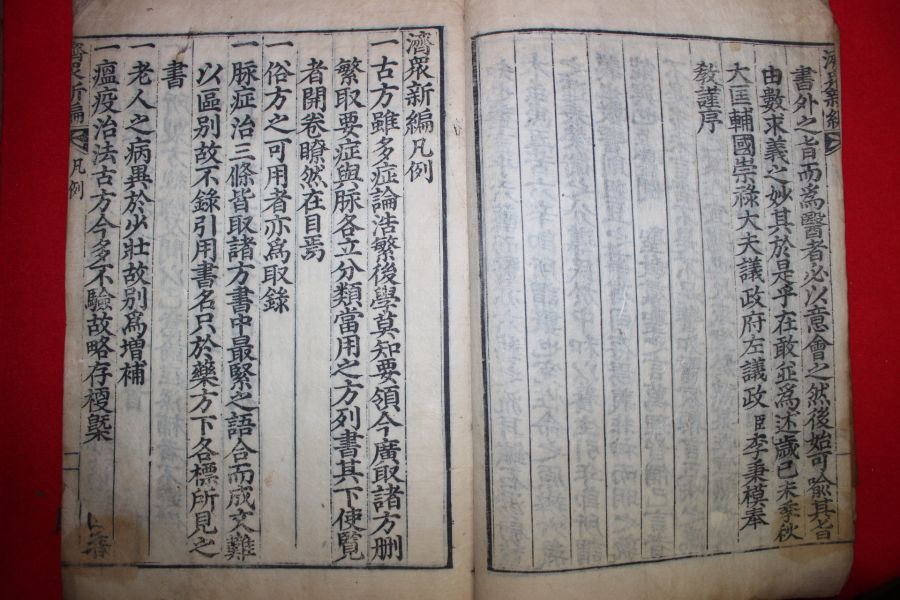 書外之旨而爲醫者必以意會之然後始可喩其旨
由數求義之妙其於是乎在敢並爲述歲己未季秋
大匡輔國崇祿大夫議政府左議政臣李秉模奉
敎謹序
濟衆新編
濟衆新編凡例
一古方雖多症論浩繁後學莫知要領今廣取諸方刪
繁取要症與脉各立分類當用之方列書其下使覽
者開卷瞭然在目焉
一俗方之可用者亦爲取錄
一脉症治三條皆取諸方書中最緊之語合而成文難
以區別故不錄引用書名只於藥方下各標所見之
書
一老人之病異於少壯故別爲增補
一瘟疫治法古方今多不驗故略存梗槩
濟衆新編 凡例